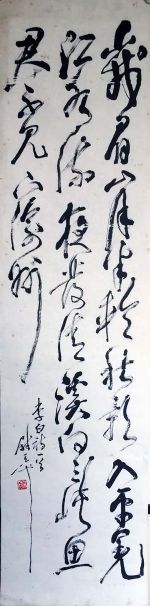 峨眉山月半輪秋影入平羌
江水流夜發清溪向三峽思
君不見下渝州
李白詩一首